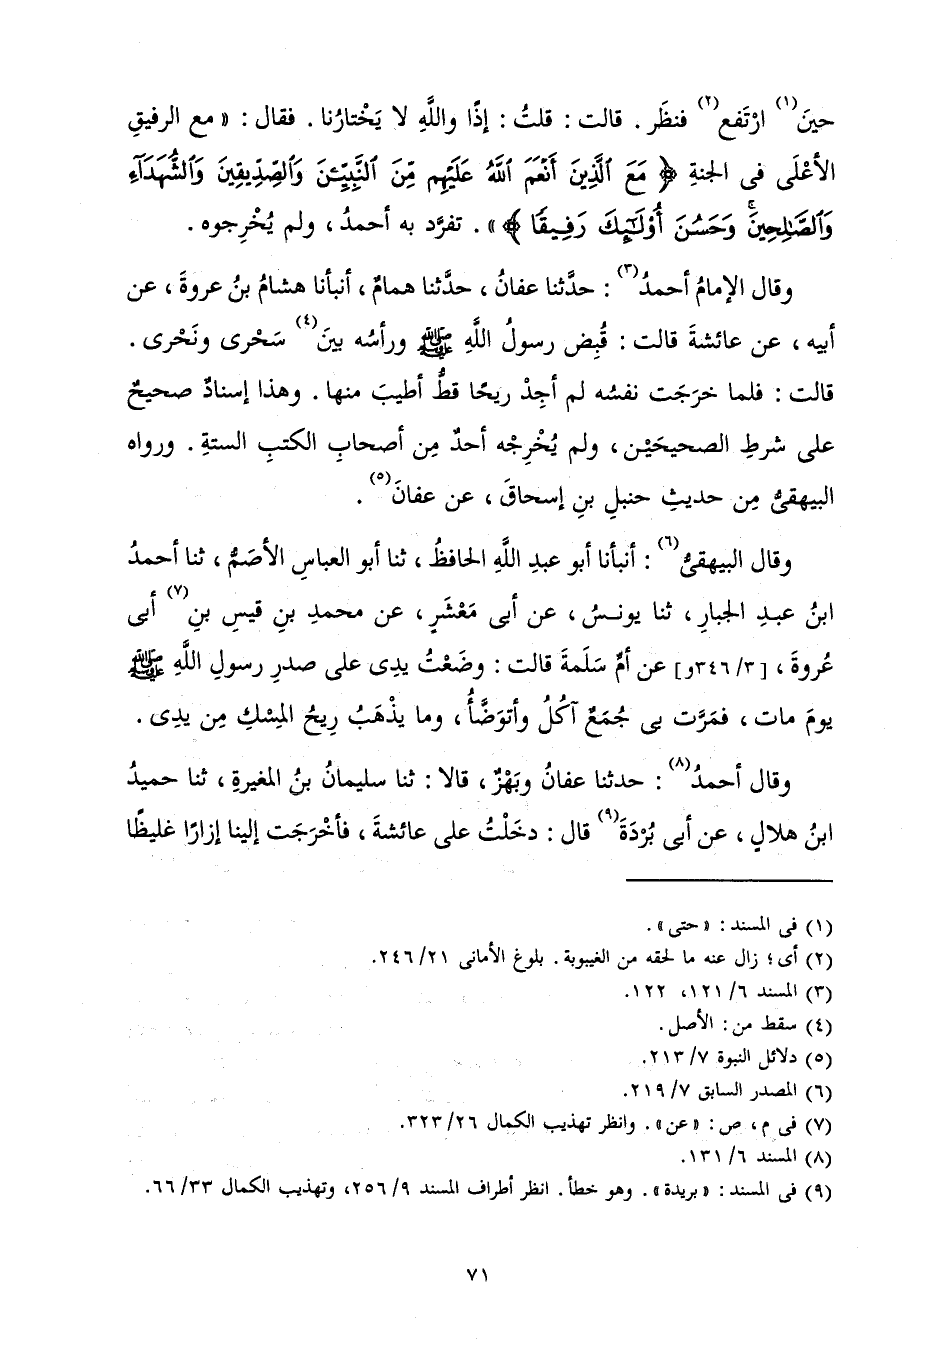 حينَ(١) ارْتَفع(٢) فنظَر . قالت : قلتُ : إذًا واللَّهِ لا يَخْتارُنا . فقال : « مع الرفيقِ
الأعْلَى فى الجنةِ ﴿ مَعَ ٱلَّذِينَ أَنْعَمَ ٱللَّهُ عَلَيْهِم مِّنَ ٱلنَّبِيِّـۧنَ وَٱلصِّدِّيقِينَ وَٱلشُّهَدَآءِ
وَٱلصَّـٰلِحِينَۚ وَحَسُنَ أُوْلَـٰٓئِكَ رَفِيقًا ﴾ » . تفرَّد به أحمدُ ، ولم يُخْرِجوه .
وقال الإمامُ أحمدُ(٣) : حدَّثنا عفانُ ، حدَّثنا همامٌ ، أنبأنا هشامُ بنُ عروةَ ، عن
أبيه ، عن عائشةَ قالت : قُبِض رسولُ اللَّهِ ﷺ ورأسُه بينَ(٤) سَحْرى ونَحْرى .
قالت : فلما خرَجَت نفسُه لم أجِدْ ريحًا قطُّ أطيبَ منها . وهذا إسنادٌ صحيحٌ
على شرطِ الصحيحَيْن ، ولم يُخْرِجْه أحدٌ مِن أصحابِ الكتبِ الستةِ . ورواه
البيهقىُّ مِن حديثِ حنبلِ بنِ إسحاقَ ، عن عفانَ(٥) .
وقال البيهقىُّ(٦) : أنبأنا أبو عبدِ اللَّهِ الحافظُ ، ثنا أبو العباسِ الأصَمُّ ، ثنا أحمدُ
ابنُ عبدِ الجبارِ ، ثنا يونسُ ، عن أبى مَعْشَرٍ ، عن محمدِ بنِ قيسِ بنِ(٧) أبى
عُروةَ ، [٣/ ٣٤٦و] عن أمِّ سَلَمةَ قالت : وضَعْتُ يدِى على صدرِ رسولِ اللَّهِ ﷺ
يومَ مات ، فمَرَّت بى جُمَعٌ آكُلُ وأتوَضَّأُ ، وما يذْهَبُ رِيحُ المِسْكِ مِن يدِى .
وقال أحمدُ(٨) : حدثنا عفانُ وبَهْزٌ ، قالا : ثنا سليمانُ بنُ المغيرةِ ، ثنا حميدُ
ابنُ هلالٍ ، عن أبى بُرْدَةَ(٩) قال : دخَلْتُ على عائشةَ ، فأخْرَجَت إلينا إزارًا غليظًا
(١) فى المسند : « حتى » .
(٢) أى ؛ زال عنه ما لحقه من الغيبوبة . بلوغ الأمانى ٢١/ ٢٤٦.
(٣) المسند ٦/ ١٢١، ١٢٢.
(٤) سقط من : الأصل .
(٥) دلائل النبوة ٧/ ٢١٣.
(٦) المصدر السابق ٧/ ٢١٩.
(٧) فى م ، ص : « عن » . وانظر تهذيب الكمال ٢٦/ ٣٢٣.
(٨) المسند ٦/ ١٣١.
(٩) فى المسند : « بريدة » . وهو خطأ . انظر أطراف المسند ٩/ ٢٥٦، وتهذيب الكمال ٣٣/ ٦٦.
٧١